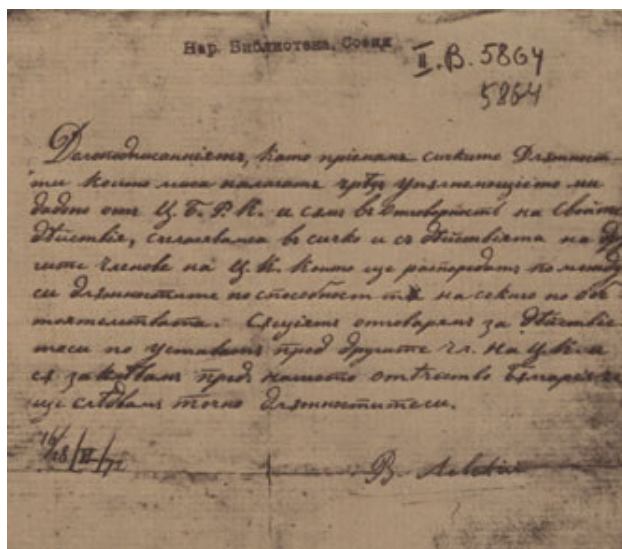 Нар. Библиотека, София
II. В. 5864
5864
Долоподписанниятъ, като приемамъ сичките длъжнос-
ти които ми се налагатъ чрезъ упълномощието ми
дадено отъ Ц. Б. Р. К. и самъ въ отговорность на свойте
дѣйствия, съгласявамъ въ сичко и съ дѣйствията на дру
гите членове на Ц. К. които ще распоредатъ помежду
си длъжностите по способността на секиго по об
тоятелствата. Сащиятъ отговарямъ за дѣйствие
теси по уставътъ пред другите чл. на Ц. К. и
ся заклѣвамъ предъ нашето отечество България че
ще слѣдвамъ точно длъжноститеси.
16/28/VI/72
В. Левскій